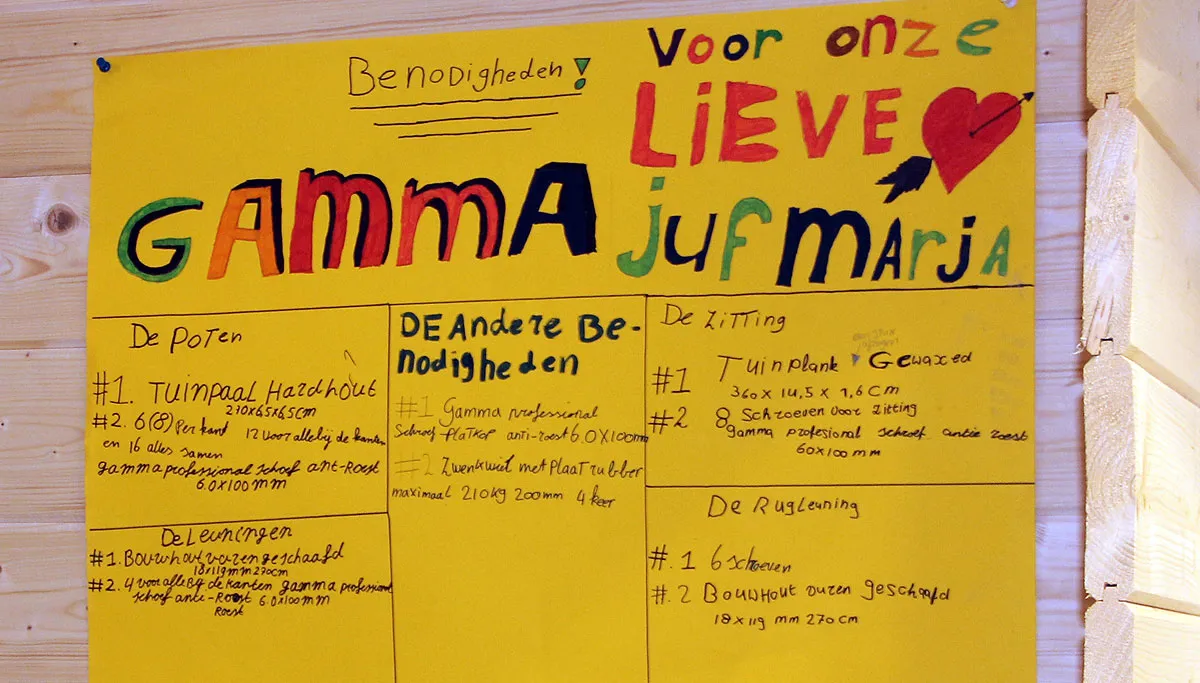 Benodigheden!
Voor onze
LiEVE
GAMMA
juf marja
De Poten
#1. Tuinpaal Hardhout
270x65x65cm
#2. 6(8) Per kant 12 voor allebij de kanten
en 16 alles samen
gamma professional schoef ant-Roest
6.0x100mm
De Leuningen
#1. Bouwhout vuren geschaafd
18x119mm 270cm
#2. 4 voor alle Bij de kanten gamma professional
schoef anti-Roest 6.0x100mm
Roest
DE Andere Be-
nodigheden
#1 Gamma professional
Schroef PLATKOP anti-roest 6.0X100mm
#2 Zwenkwiel met Plaat rubber
maximaal 210kg 200mm 4 keer
De Zitting
#1 Tuinplank Gewaxed
360 x 14,5 x 1,6 cm
#2 8 Schroeven Voor Zitting
gamma profesional schroef antie roest
60x100 mm
De Rugleuning
#.1 6 schoeven
#.2 Bouwhout vuren geschaafd
18 x 119 mm 270 cm